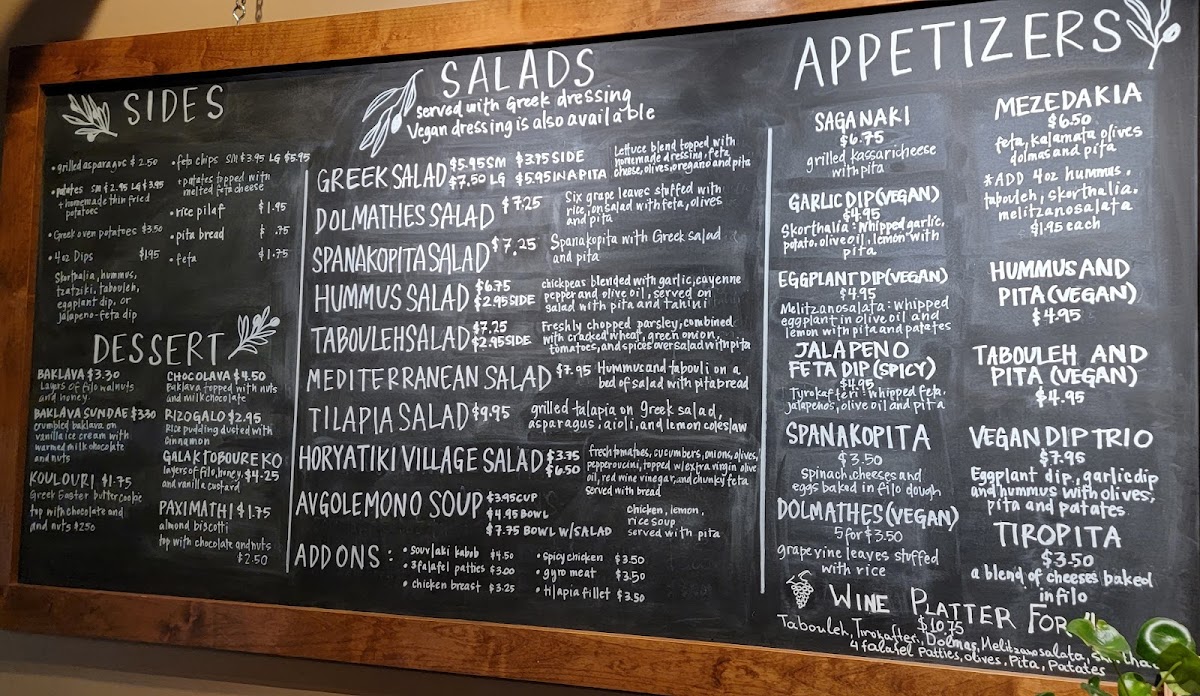 SIDES
• grilled asparagus $2.50
• patates SM $2.95 LG $3.95
+ homemade thin fried
potatoes
• Greek oven potatoes $3.50
• 4oz Dips $1.95
Skorthalia, hummus,
tzatziki, tabouleh,
eggplant dip, or
jalapeno-feta dip
• feta chips SM $3.95 LG $5.95
+ patates topped with
melted feta cheese
• rice pilaf $1.95
• pita bread $.75
• feta $1.75
DESSERT
BAKLAVA $3.30
Layers of filo walnuts
and honey.
BAKLAVA SUNDAE $3.30
crumbled baklava on
vanilla ice cream with
warmed milk chocolate
and nuts
KOULOURI $1.75
Greek Easter butter cookie
top with chocolate and
and nuts $2.50
CHOCOLAVA $4.50
Baklava topped with nuts
and milk chocolate
RIZOGALO $2.95
Rice pudding dusted with
Cinnamon
GALAKTOBOUREKO
layers of filo, honey, $4.25
and vanilla custard
PAXIMATHI $1.75
almond biscotti
top with chocolate and nuts
$2.50
SALADS
served with Greek dressing
Vegan dressing is also available
GREEK SALAD $5.95 SM $3.75 SIDE
$7.50 LG $5.95 IN A PITA
Lettuce blend topped with
homemade dressing, feta
cheese, olives, oregano and pita
DOLMATHES SALAD $7.25
Six grape leaves stuffed with
rice, on salad with feta, olives
and pita
SPANAKOPITA SALAD $7.25
Spanakopita with Greek salad
and pita
HUMMUS SALAD $6.75
$2.95 SIDE
chickpeas blended with garlic, cayenne
pepper and olive oil, served on
salad with pita and tahini
TABOULEH SALAD $7.25
$2.95 SIDE
Freshly chopped parsley, combined
with cracked wheat, green onion,
tomatoes, and spices over salad with pita
MEDITERRANEAN SALAD $7.95
Hummus and tabouli on a
bed of salad with pita bread
TILAPIA SALAD $9.95
grilled talapia on Greek salad,
asparagus, aioli, and lemon coleslaw
HORYATIKI VILLAGE SALAD $3.75
$6.50
fresh tomatoes, cucumbers, onions, olives,
pepperoncini, topped w/ extra virgin olive
oil, red wine vinegar, and chunky feta
served with bread
AVGOLEMONO SOUP $3.95 CUP
$4.95 BOWL
$7.75 BOWL W/ SALAD
chicken, lemon,
rice soup
served with pita
ADD ONS:
• souvlaki kabob $4.50
• 3 falafel patties $3.00
• chicken breast $3.25
• spicy chicken $3.50
• gyro meat $3.50
• tilapia fillet $3.50
APPETIZERS
SAGANAKI
$6.75
grilled kassari cheese
with pita
GARLIC DIP (VEGAN)
$4.95
Skorthalia: whipped garlic,
potato, olive oil, lemon with
pita
EGGPLANT DIP (VEGAN)
$4.95
Melitzanosalata: whipped
eggplant in olive oil and
lemon with pita and patates
JALAPENO
FETA DIP (SPICY)
$4.95
Tyrokafteri: whipped feta,
jalapenos, olive oil and pita
SPANAKOPITA
$3.50
spinach, cheeses and
eggs baked in filo dough
DOLMATHES (VEGAN)
5 for $3.50
grape vine leaves stuffed
with rice
MEZEDAKIA
$6.50
feta, kalamata olives
dolmas and pita
*ADD 4oz hummus,
tabouleh, skorthalia,
melitzanosalata
$1.95 each
HUMMUS AND
PITA (VEGAN)
$4.95
TABOULEH AND
PITA (VEGAN)
$4.95
VEGAN DIP TRIO
$7.95
Eggplant dip, garlic dip
and hummus with olives,
pita and patates
TIROPITA
$3.50
a blend of cheeses baked
in filo
WINE PLATTER FOR
$10.75
Tabouleh, Tirokafteri, Dolmas, Melitzanosalata,
4 falafel Patties, olives, Pita, Patates